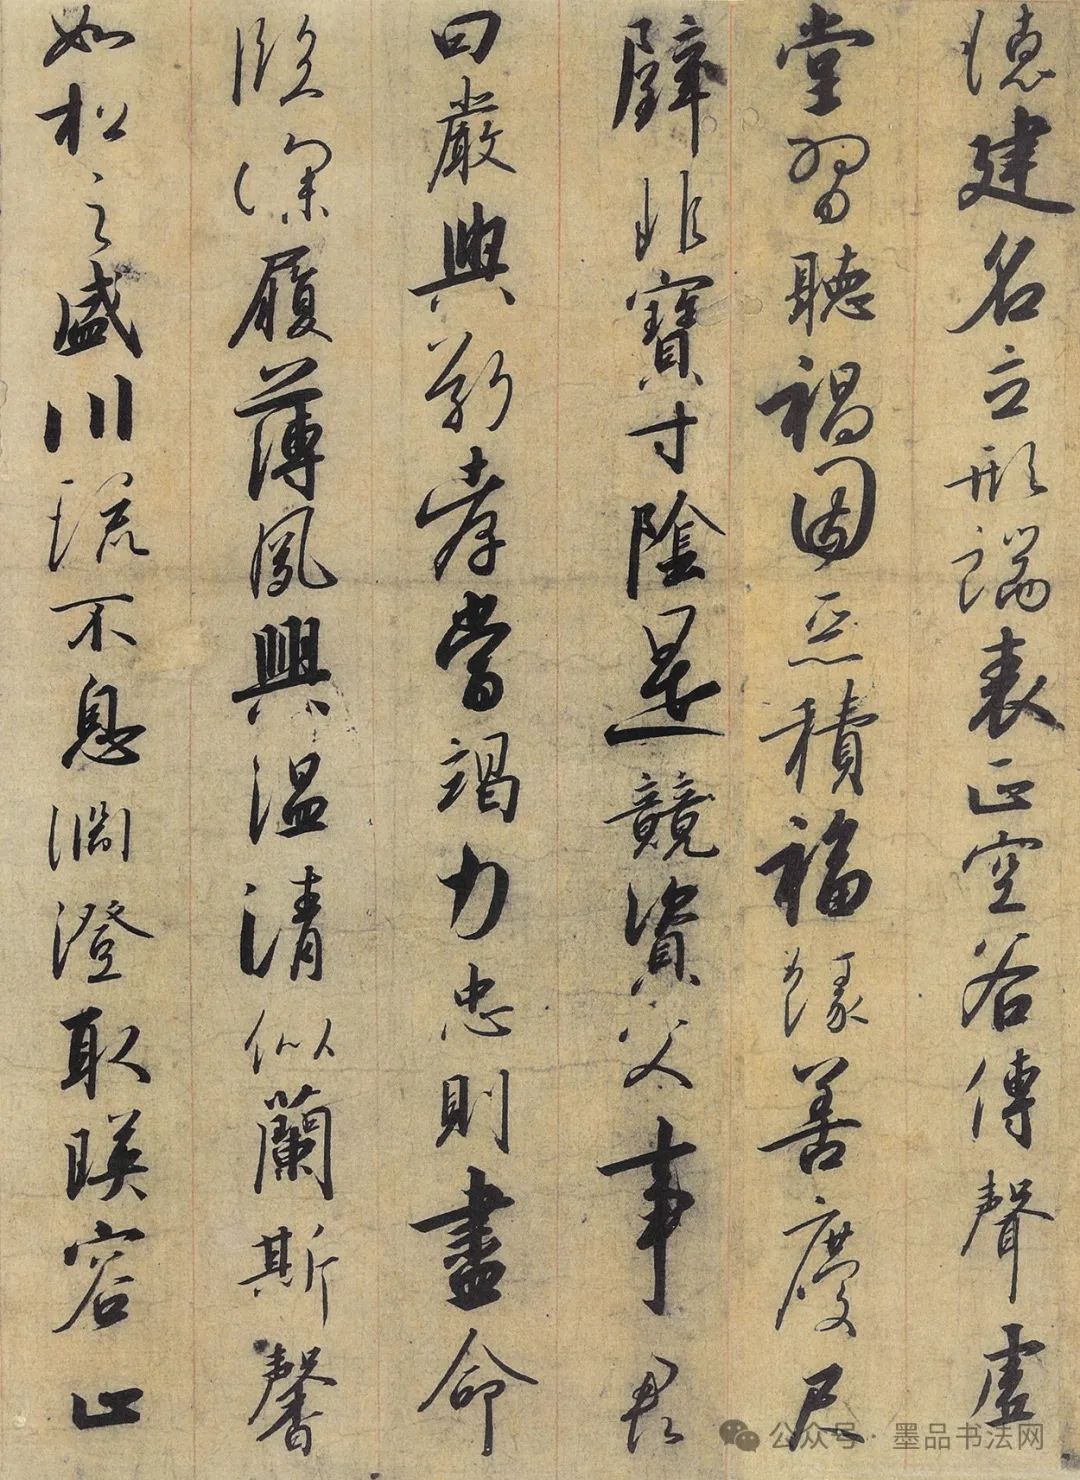 德建名立形端表正空谷傳聲虛
堂習聽禍因惡積福緣善慶尺
璧非寶寸陰是競資父事君
曰嚴與敬孝當竭力忠則盡命
臨深履薄夙興溫清似蘭斯馨
如松之盛川流不息淵澄取暎容止
公众号·墨品书法网